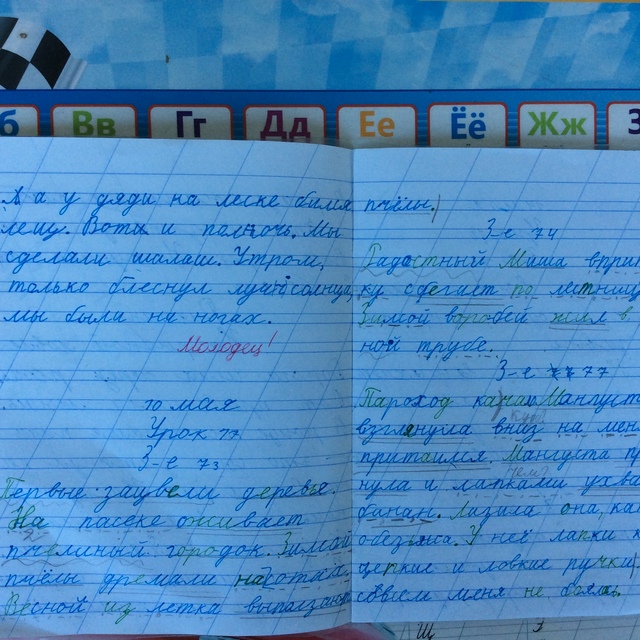 б Вв Гг Дд Ее Ёё Жж З
А а у дяди на леске бился
лещ. Вот и полночь. Мы
сделали шалаш. Утром,
только блеснул луч солнца,
мы были на ногах.
Молодец!
10 мая
Урок 77
З-е 73
Первые зацвели деревья.
На пасеке оживает
пчелиный городок. Зимой
пчёлы дремали
Весной из летка выползают
пчёлы.
З-е 74
Радастный Миша вприп
ку сбегает по лестниц
Зимой воробей жил в
ной трубе.
З-е 77
Пароход Мангуст
взглянула вниз на мен
притаился. Мангуста пр
нула и лапками ухва
банан. Лазила она, как
обезьяна. У неё лапки к
цепкие и ловкие ручки
совсем меня не боялась
Щ З